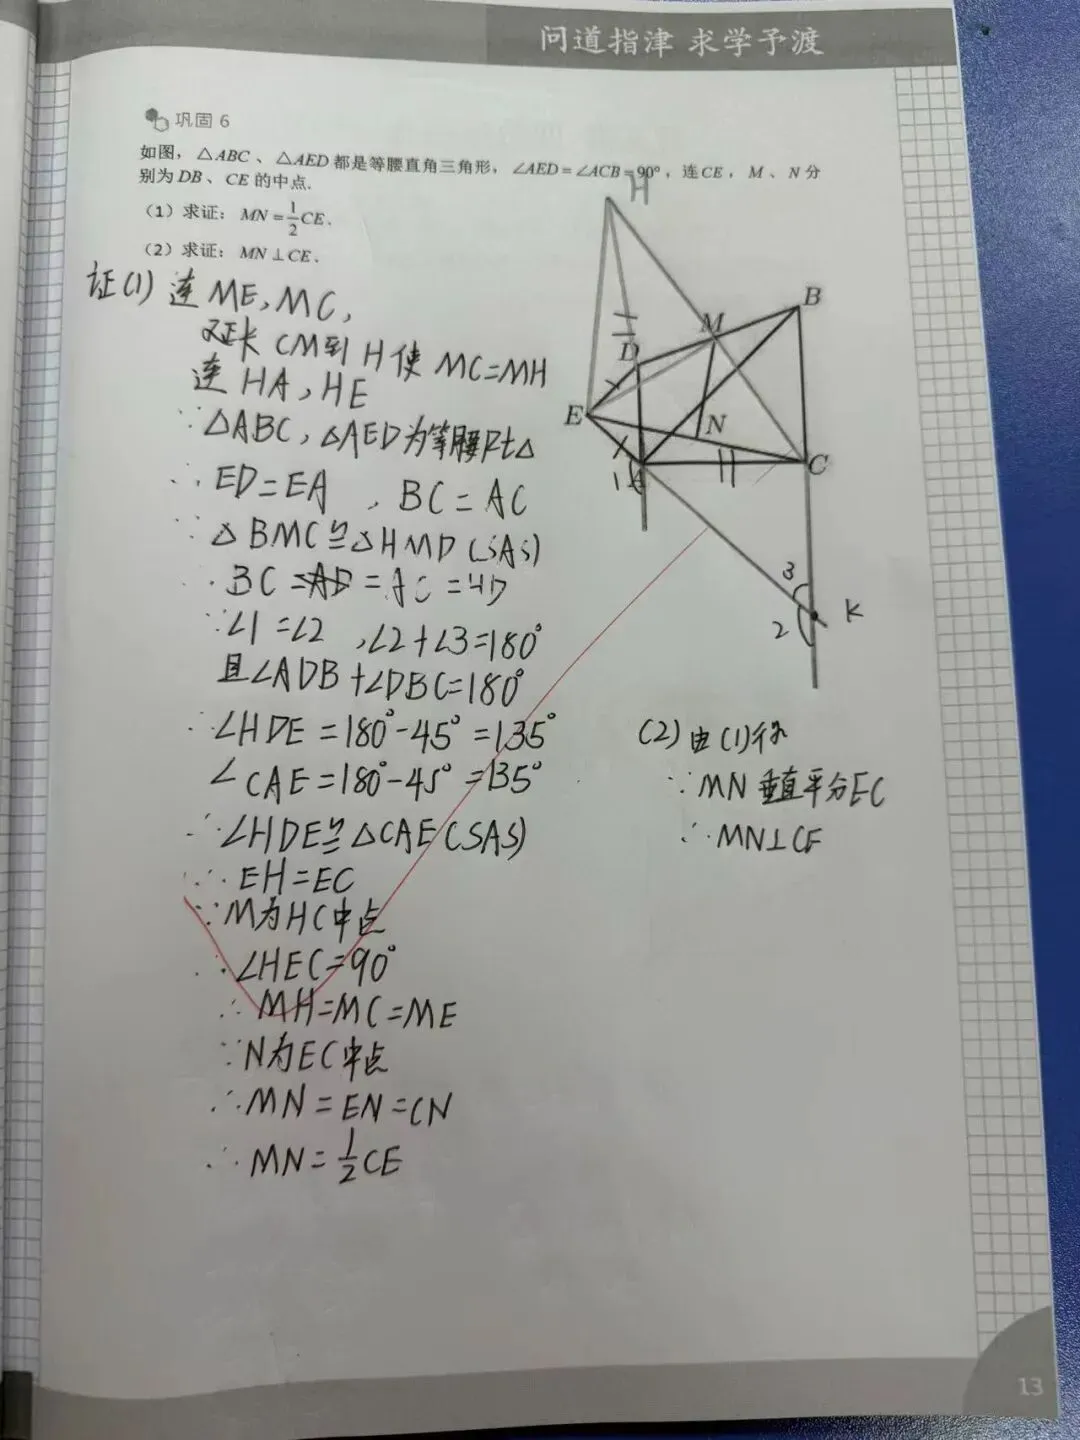 问道指津 求学予渡
巩固 6
如图，△ABC、△AED 都是等腰直角三角形，∠AED=∠ACB=90°，连CE，M、N分
别为DB、CE的中点.
（1）求证：MN=1/2CE.
（2）求证：MN⊥CE.
证(1) 连ME,MC,
延长CM到H使MC=MH
连HA,HE
∵△ABC,△AED为等腰Rt△
∴ED=EA ,BC=AC
∴△BMC≌△HMD(SAS)
∴BC=AD=AC=HD
∵∠1=∠2 ,∠2+∠3=180°
且∠ADB+∠DBC=180°
∴∠HDE=180°-45°=135°
∠CAE=180°-45°=135°
∴∠HDE≌△CAE(SAS)
∴EH=EC
∵M为HC中点
∴∠HEC=90°
∴MH=MC=ME
∵N为EC中点
∴MN=EN=CN
∴MN=1/2CE
(2)由(1)得
∵MN垂直平分EC
∴MN⊥CE
H
B
M
D
E
N
C
1
A
3
K
2
13